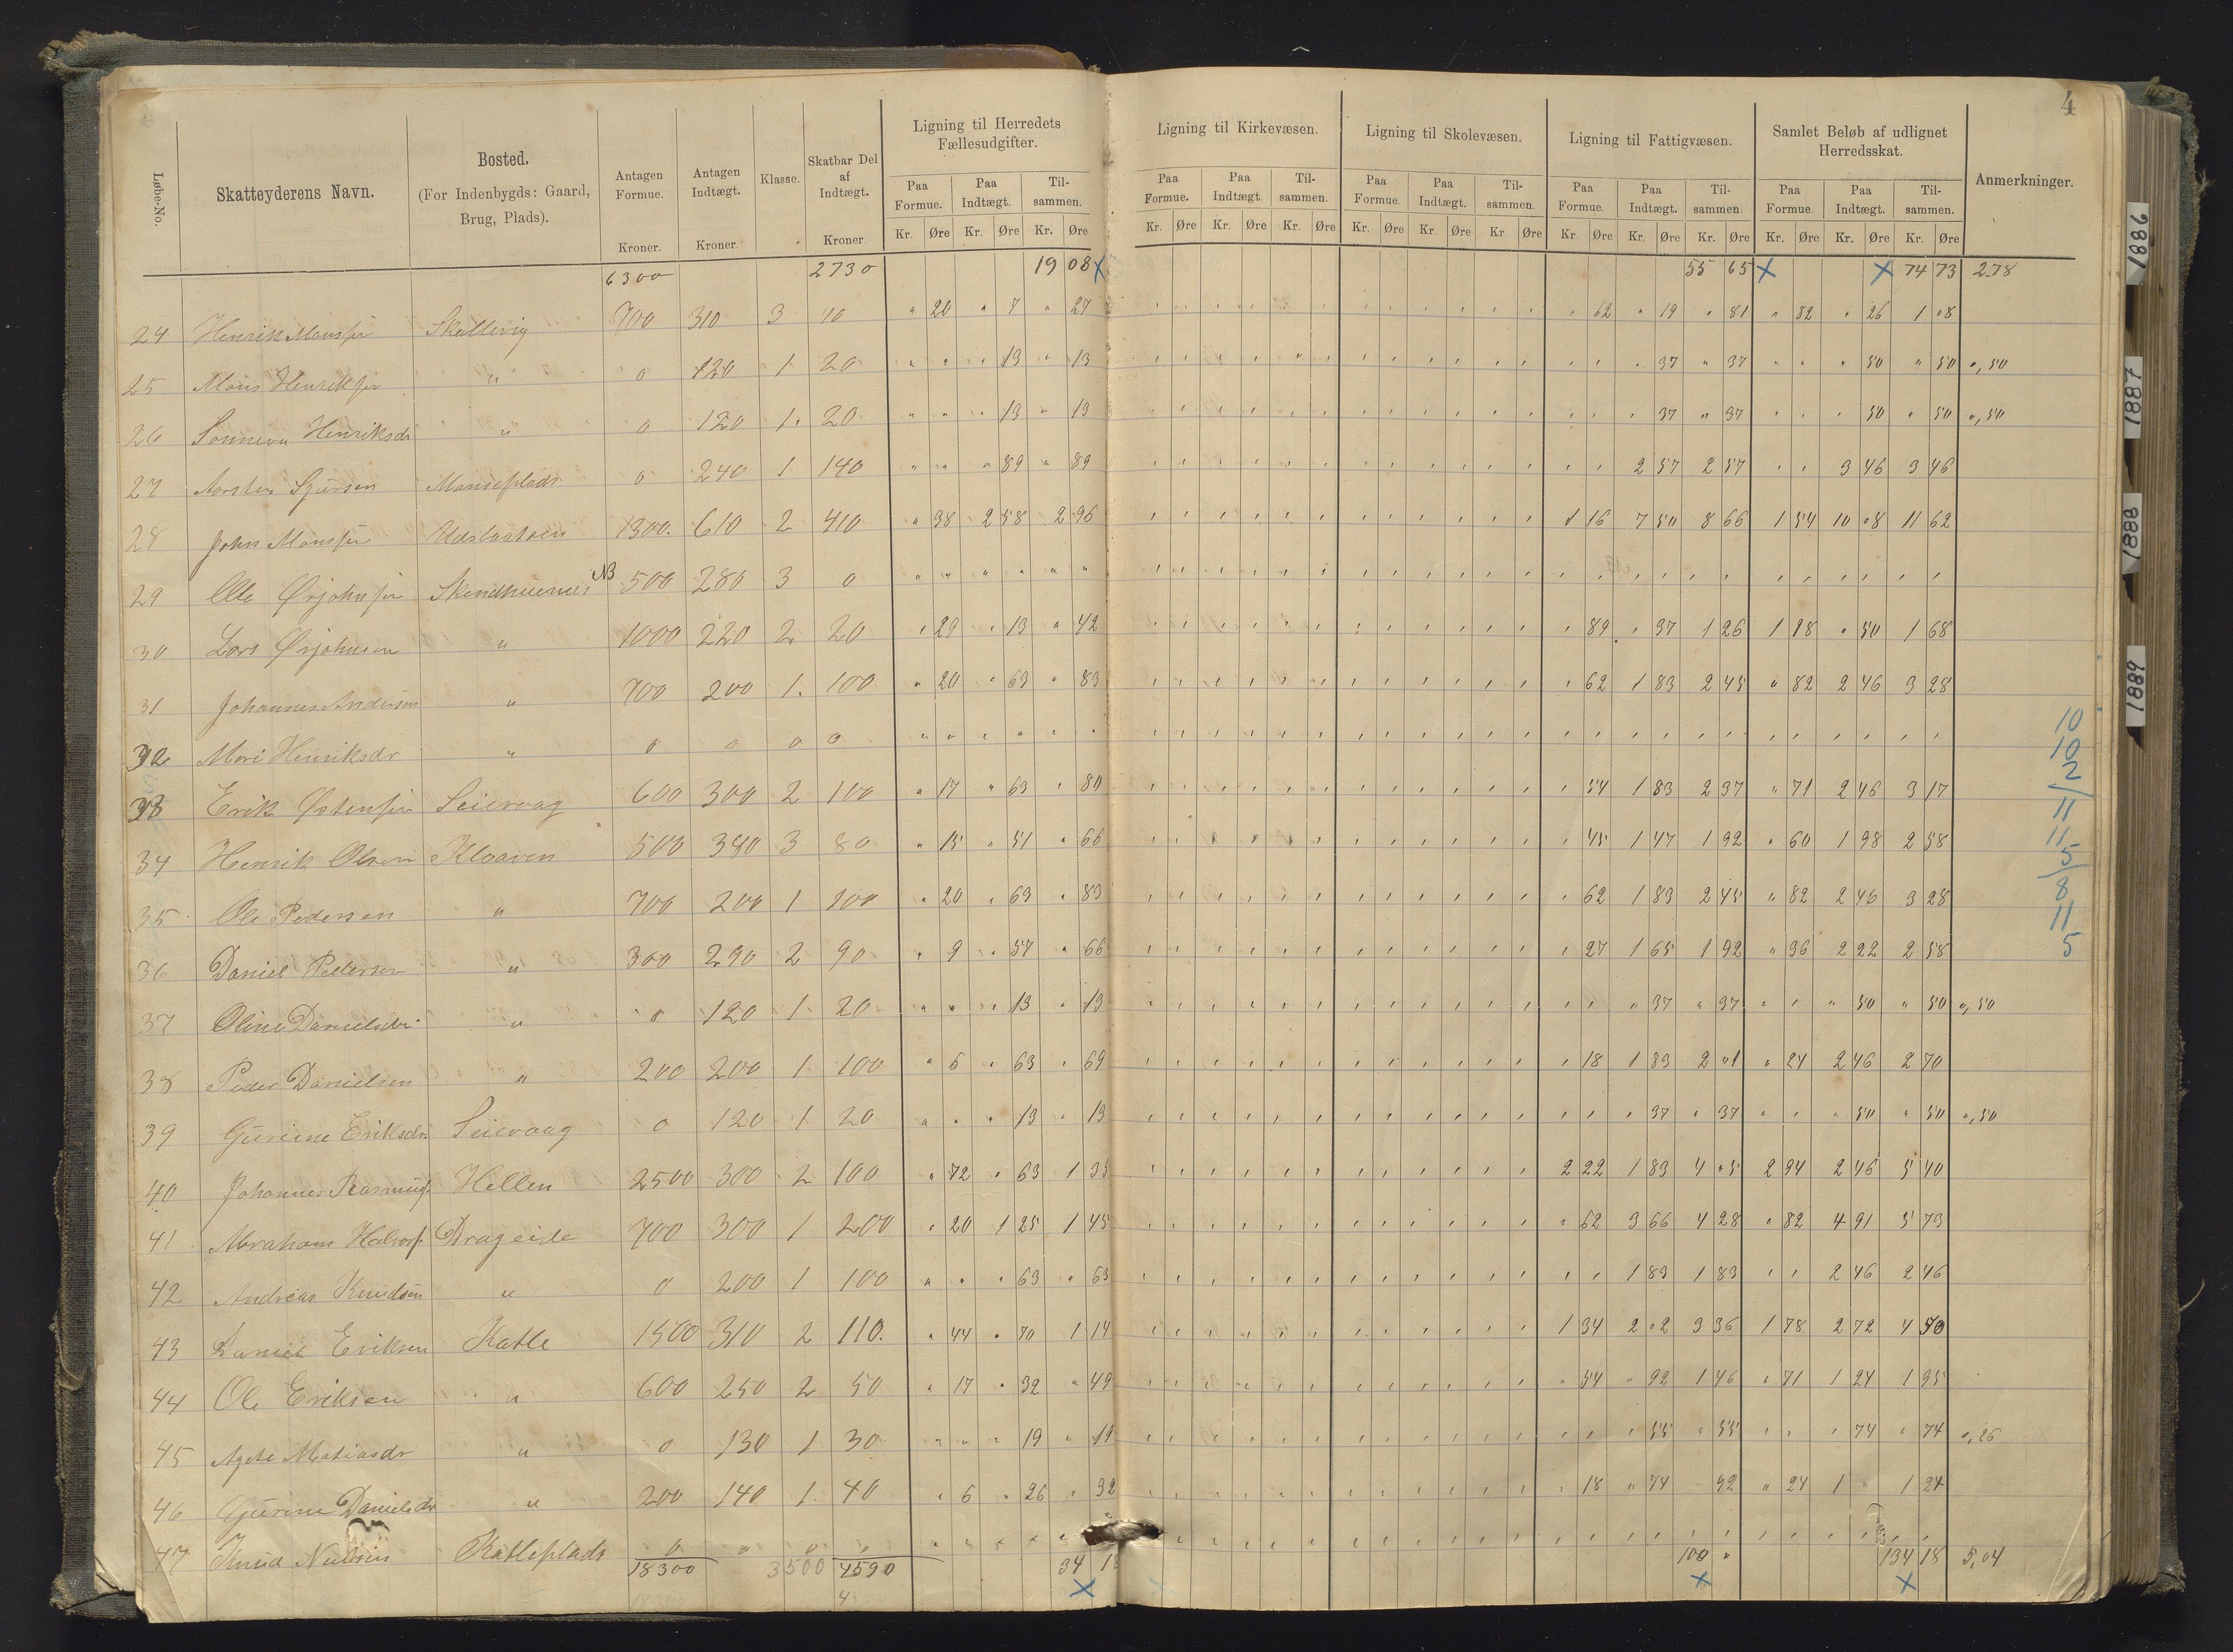 4
Løbe-No. Skatteyderens Navn. Bosted. (For Indenbygds: Gaard, Brug, Plads). Antagen Formue. Kroner. Antagen Indtægt. Kroner. Klasse. Skatbar Del af Indtægt. Kroner Ligning til Herredets Fællesudgifter. Ligning til Kirkevæsen. Ligning til Skolevæsen. Ligning til Fattigvæsen. Samlet Beløb af udlignet Herredsskat. Anmerkninger.
Paa Formue. Paa Indtægt. Til- sammen. Paa Formue. Paa Indtægt. Til- sammen. Paa Formue. Paa Indtægt. Til- sammen. Paa Formue. Paa Indtægt. Til- sammen. Paa Formue. Paa Indtægt. Til- sammen.
Kr. Øre Kr. Øre Kr. Øre Kr. Øre Kr. Øre Kr. Øre Kr. Øre Kr. Øre Kr Øre Kr. Øre Kr. Øre Kr. Øre Kr. Øre Kr. Øre Kr. Øre
6300 2730 19 08 X 55 65 X X 74 73 2.78
24 Henrik Monssen Skallevig 700 310 3 10 " 20 " 7 " 27 " 62 " 19 " 81 " 82 " 26 1 "8
25 Mons Henriksen " 0 120 1 20 " " " 13 " 13 " 37 " 37 " " " 50 " 50 ",50
26 Henriksdr " 0 120 1. 20 " " " 13 " 13 " 37 " 37 " " " 50 " 50 ",50
27 Sjursen Monseplads 0 240 1 140 " " " 89 " 89 2 57 2 57 " " 3 46 3 46
28 John Monssen 1300. 610 2 410 " 38 2 58 2 96 1 16 7 50 8 66 1 54 10 "8 11 62
29 Ole NB 500 280 3 0
30 Lars " 1000 220 2 20 " 29 " 13 " 42 " 89 " 37 1 26 1 18 " 50 1 68
31 Johannes Andersen " 700 200 1. 100 " 20 " 63 " 83 " 62 1 83 2 45 " 82 2 46 3 28
32 Mari Henriksdr " 0 0 0 0
33 Erik Østensen Seievaag 600 300 2 100 " 17 " 63 " 80 " 54 1 83 2 37 " 71 2 46 3 17
34 Henrik Olsen Kloaven 500 380 3 80 " 15 " 51 " 66 " 45 1 47 1 92 " 60 1 98 2 58
35 Ole Pedersen " 700 200 1 100 " 20 " 63 " 83 " 62 1 83 2 45 " 82 2 46 3 28
36 Daniel Pedersen " 300 290 2 90 " 9 " 57 " 66 " 27 1 65 1 92 " 36 2 22 2 58
37 Oline Danielsdr " 0 120 1 20 " " " 13 " 13 " 37 " 37 " " " 50 " 50 ",50
38 Peder Danielsen " 200 200 1 100 " 6 " 63 " 69 " 18 1 83 2 "1 " 24 2 46 2 70
39 Gurine Eriksdr Seievaag 0 120 1 20 " " " 13 " 13 " 37 " 37 " " " 50 " 50 ",50
40 Johannes Rasmus. Hellen 2500 300 2 100 " 72 " 63 1 35 2 22 1 83 4 "5 2 94 2 46 5 40
41 Abraham Halvors. Drageide 700 300 1 200 " 20 1 25 1 45 " 62 3 66 4 28 " 82 4 91 5 73
42 Andreas Knudsen " 0 200 1 100 " " " 63 " 63 1 83 1 83 " " 2 46 2 46
43 Daniel Eriksen Katle 1500 310 2 110. " 44 " 70 1 14 1 34 2 "2 3 36 1 78 2 72 4 50
44 Ole Eriksen " 600 250 2 50 " 17 " 32 " 49 " 54 " 92 1 46 " 71 1 24 1 95
45 Agte Matiasdr " 0 130 1 30 " " " 19 " 19 " 55 " 55 " " " 74 " 74 ",26
46 Gurine Danielsdr " 200 140 1. 40 " 6 " 26 " 32 " 18 " 74 92 " 24 1 " 1 24
47 Knud Nielsen Katleplads 0 " 0 "
18300 3500 4590 34 18 100 " 134 18 5,04
X X X
10
10
2
11
11
5
8
11
5
1886
1887
1888
1889